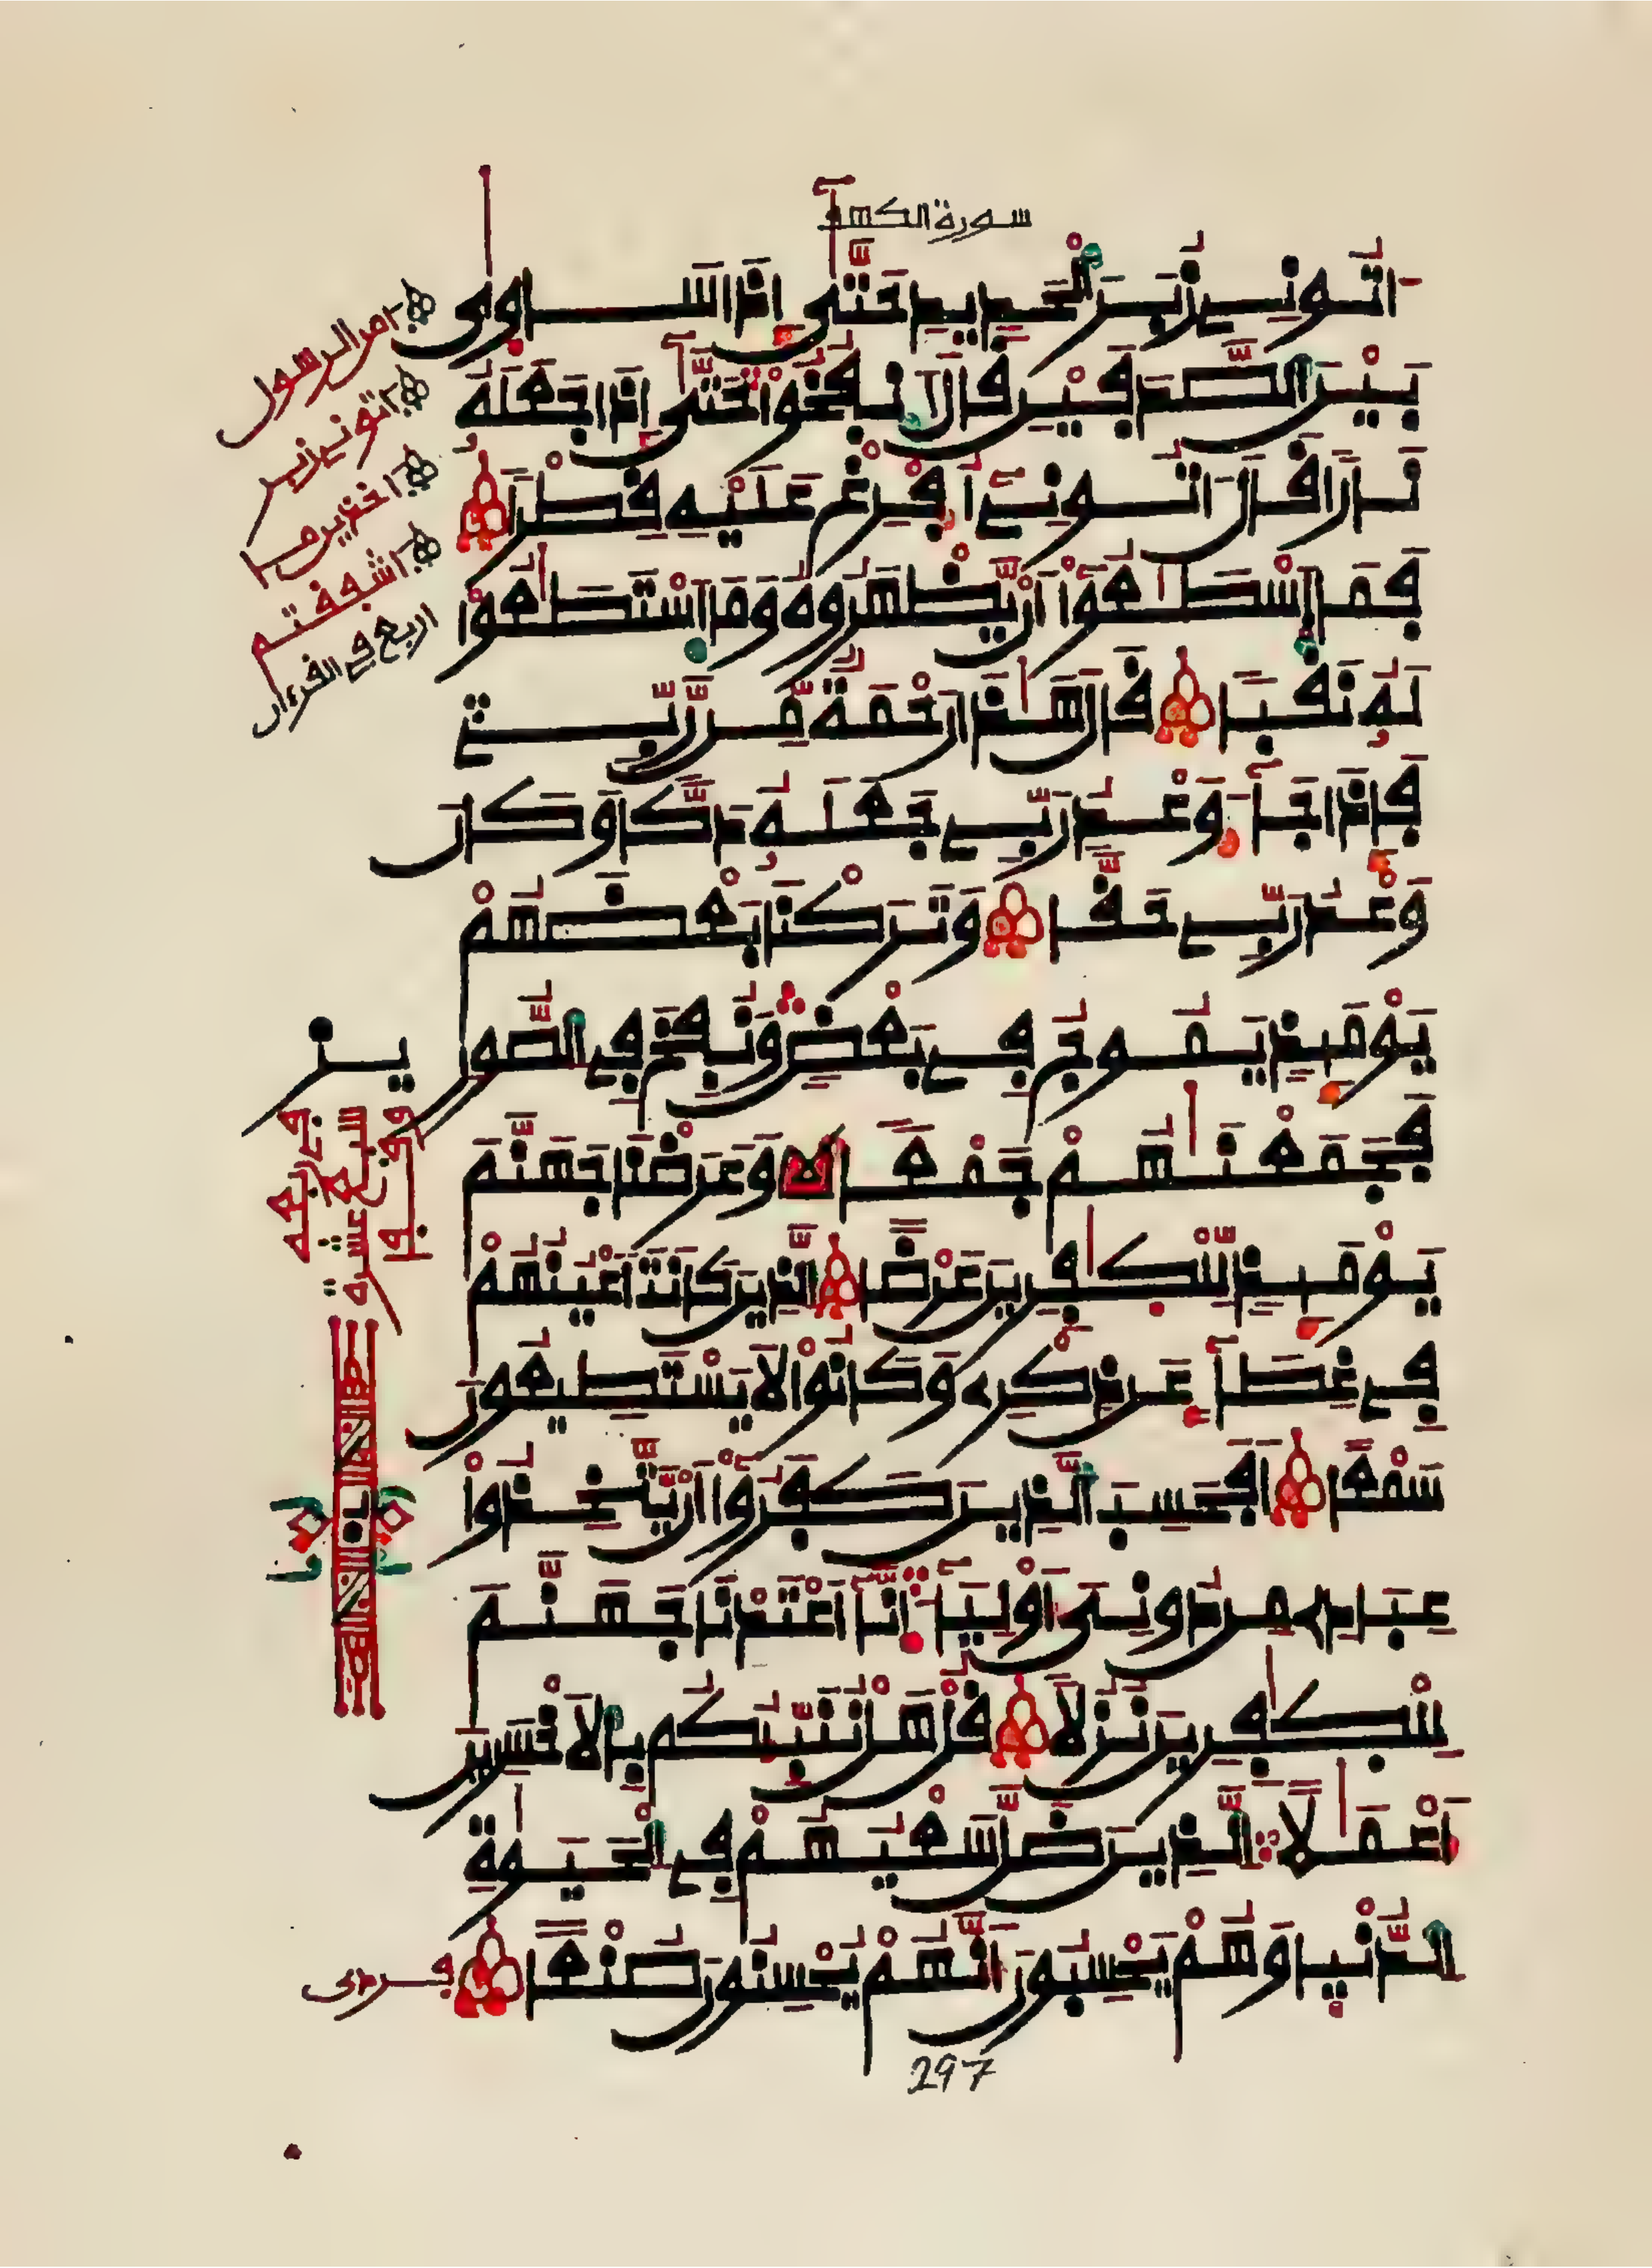 سورة الكهف
اتونے زبر الحديد حتى إذا ساوى
بين الصدفين قال انفخوا حتى إذا جعله
نارا قال اتونے أفرغ عليه قطرا
فما اسطعوا أن يظهروه وما استطعوا
له نقبا قال هذا رحمة من ربے
فإذا جآء وعد ربے جعله دكا وكان
وعد ربے حقا وتركنا بعضهم
يومئذ يموج فے بعض ونفخ في الصور
فجمعنهم جمعا وعرضنا جهنم
يومئذ للكفرين عرضا الذين كانت أعينهم
فے غطآء عن ذكرے وكانوا لا يستطيعون
سمعا أفحسب الذين كفروا أن يتخذوا
عبادے من دونى أوليآء انآ أعتدنا جهنم
للكفرين نزلا قل هل ننبئكم بالاخسرين
أعملا الذين ضل سعيهم في الحيوة
الدنيا وهم يحسبون أنهم يحسنون صنعا
297
امن الرسول
اتونے زبر
اشفقتم
اربع في القرءان